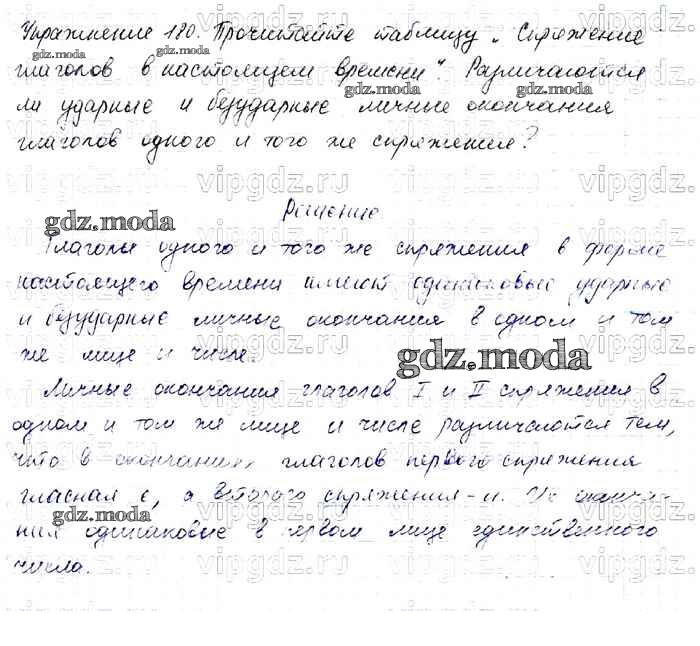 Упражнение 180. Прочитайте таблицу „Спряжение
глаголов в настоящем времени“. Различаются
ли ударные и безударные личные окончания
глаголов одного и того же спряжения?
Решение
Глаголы одного и того же спряжения в форме
настоящего времени имеют одинаковые ударные
и безударные личные окончания в одном и том
же лице и числе.
Личные окончания глаголов I и II спряжения в
одном и том же лице и числе различаются тем,
что в окончаниях глаголов первого спряжения
гласная е, а второго спряжения - и. Но оконча-
ния одинаковые в первом лице единственного
числа.
gdz.moda
gdz.moda
gdz.moda
gdz.moda
gdz.moda
gdz.moda
gdz.moda
vipgdz.ru